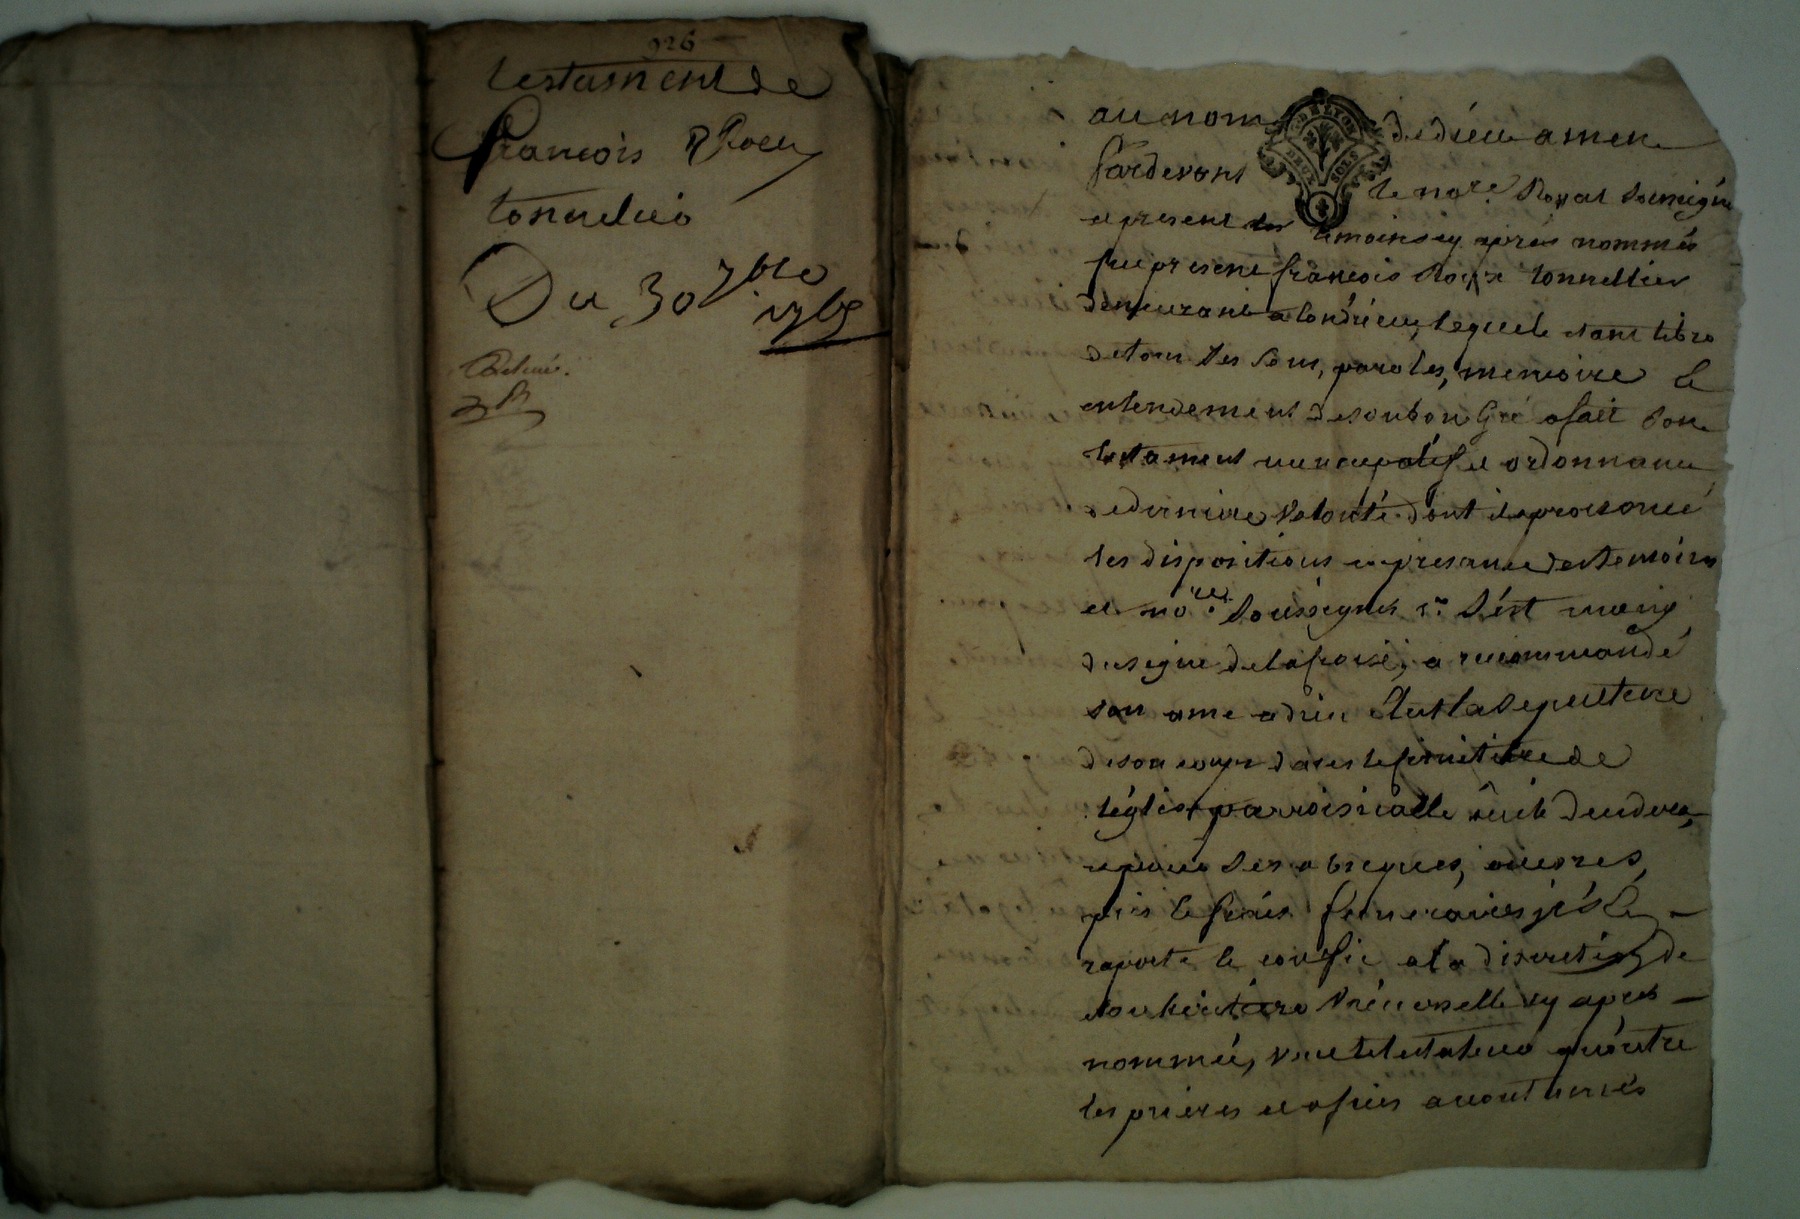 926
testament de
françois Roux
tonnelier
Du 30 7bre
au nom de dieu amen
Pardevant le nore. Royal soussigné
et present les temoins cy aprés nommés
fut present françois Roux tonnellier
demeurant a Condrieu, lequel etant libre
de tous ses sens, paroles, memoire et
entendement de son bon gré a fait son
testament nuncupatif et ordonnance
de derniere volonté dont il a prononcé
les dispositions en presance des temoins
et nore. soussignés Sest muny
du signe de la croix, a recommandé
son ame a dieu Elut la sepulture
de son corps dans le simitiere de
léglise parroissialle
et pour ses obseques, œuvres
pies et frais funeraires il s'en
raporte et confie a la discretion de
son heritiere universelle cy aprés
nommée, veut le testateur qu'outre
les prieres et ofices accoutumés